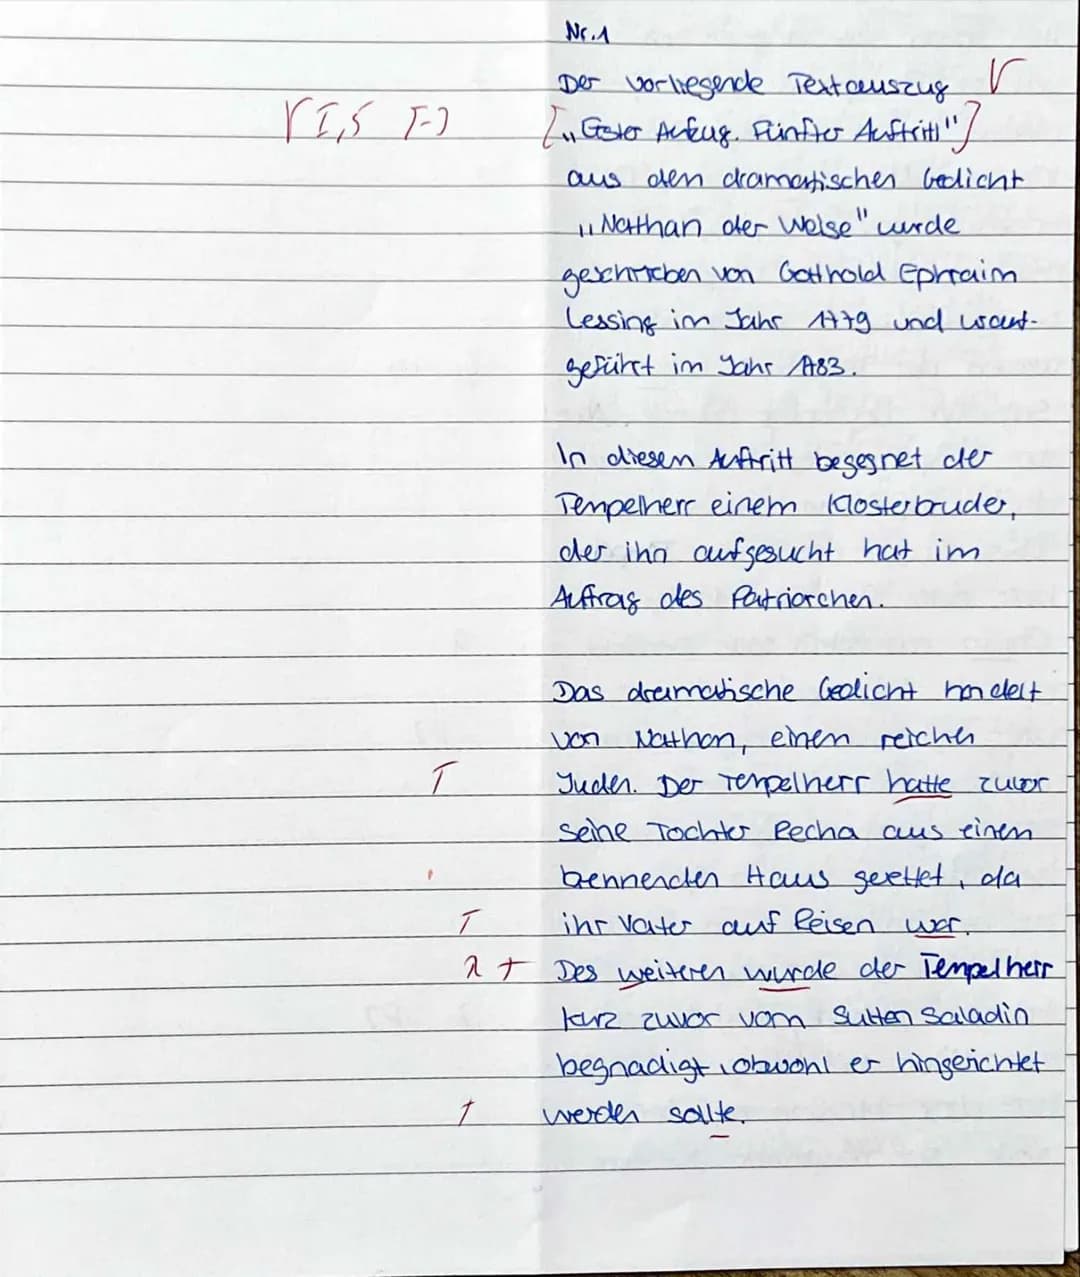 Nr. 1
Der vorliegende Textauszug √
√ I,5 [-] [„Erster Aufzug. Fünfter Auftritt"]
aus dem dramatischen Gedicht
„Nathan der Weise" wurde
geschrieben von Gotthold Ephraim
Lessing im Jahr 1779 und
geführt im Jahr 1783.
In diesem Auftritt begegnet der
Tempelherr einem Klosterbruder,
der ihn aufgesucht hat im
Auftrag des Patriarchen.
Das dramatische Gedicht handelt
von Nathan, einem reichen
T Juden. Der Tempelherr hatte zuvor
seine Tochter Recha aus einem
brennenden Haus gerettet, da
T ihr Vater auf Reisen war.
Des weiteren wurde der Tempelherr
kurz zuvor vom Sultan Saladin
begnadigt, obwohl er hingerichtet
T werden sollte.